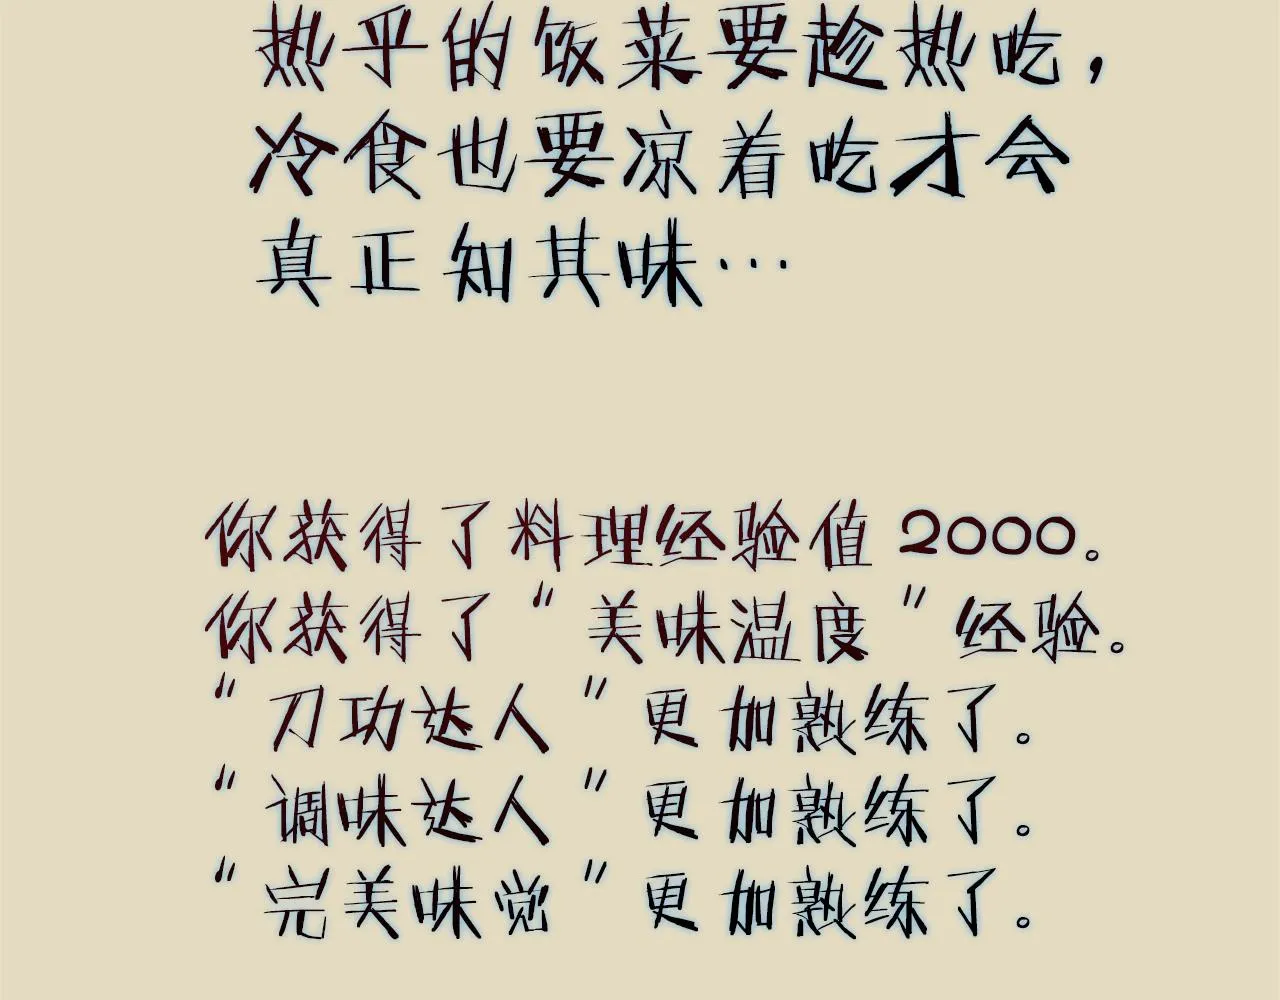 热乎的饭菜要趁热吃，
冷食也要凉着吃才会
真正知其味…
你获得了料理经验值2000。
你获得了“美味温度”经验。
“刀功达人”更加熟练了。
“调味达人”更加熟练了。
“完美味觉”更加熟练了。